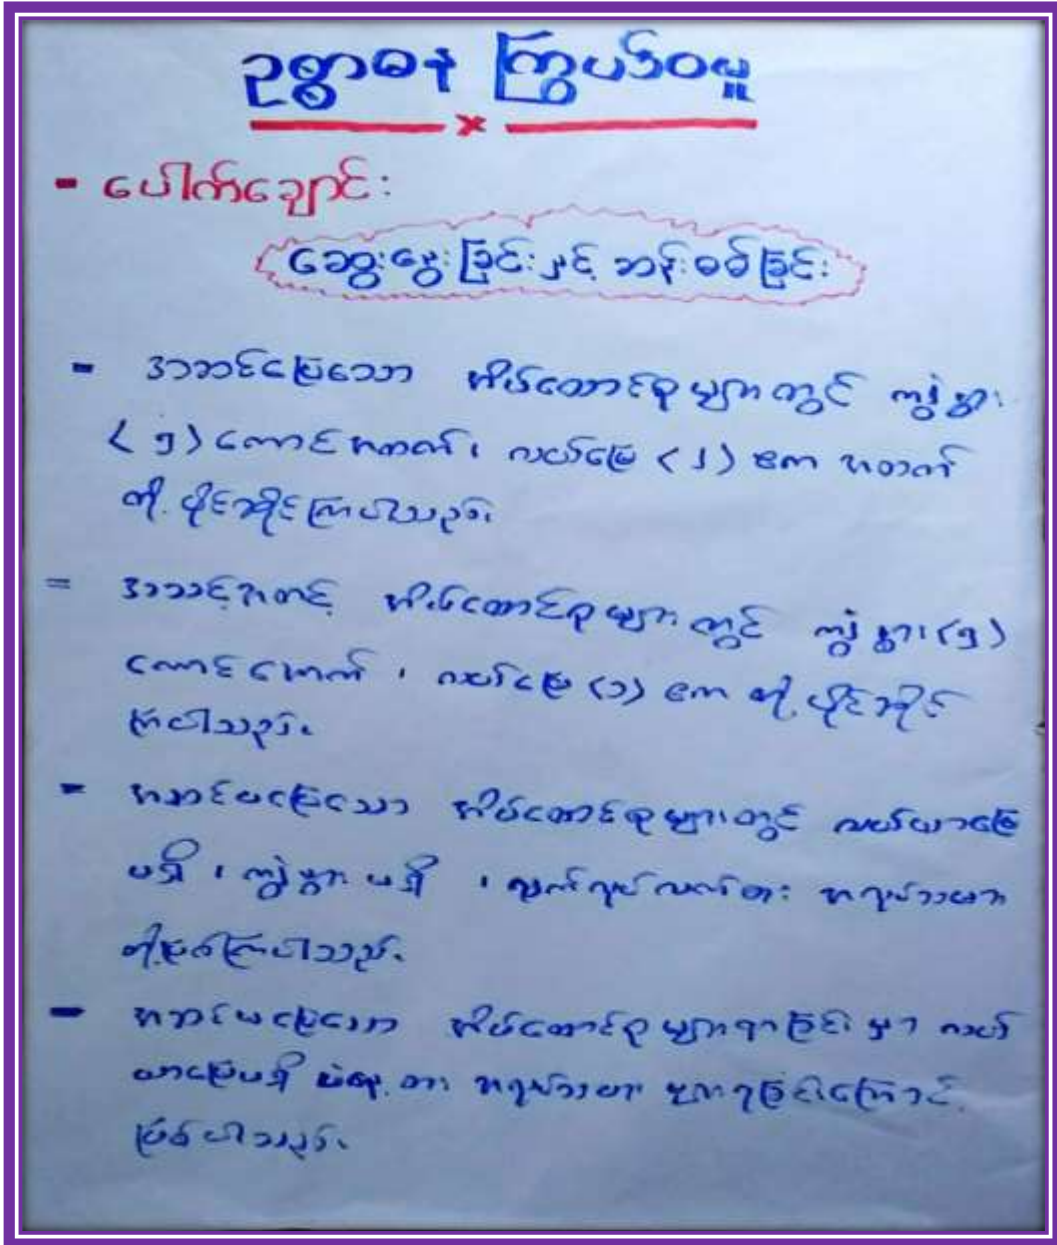 ဥစ္စာဓန ကြွယ်ဝမှု
x
- ပေါက်ချောင်း
ဆွေးနွေးခြင်းနှင့် ဆန်းစစ်ခြင်း
- အဆင်ပြေသော အိမ်ထောင်စုများတွင် ကျွဲနွား
(၅) ကောင်အထက်၊ လယ်မြေ (၂) ဧက အထက်
တို့ ပိုင်ဆိုင်ကြပါသည်။
= အသင့်အတင့် အိမ်ထောင်စုများတွင် ကျွဲနွား (၅)
ကောင်အောက်၊ လယ်မြေ (၁) ဧက တို့ ပိုင်ဆိုင်
ကြပါသည်။
- အဆင်မပြေသော အိမ်ထောင်စုများတွင် လယ်ယာမြေ
မရှိ၊ ကျွဲနွား မရှိ၊ လက်လုပ်လက်စား အလုပ်သမား
တို့ဖြစ်ကြပါသည်။
- အဆင်မပြေသော အိမ်ထောင်စုများရခြင်းမှာ လယ်
ယာမြေမရှိ အလုပ်သမား များရခြင်းကြောင့်
ဖြစ်ပါသည်။